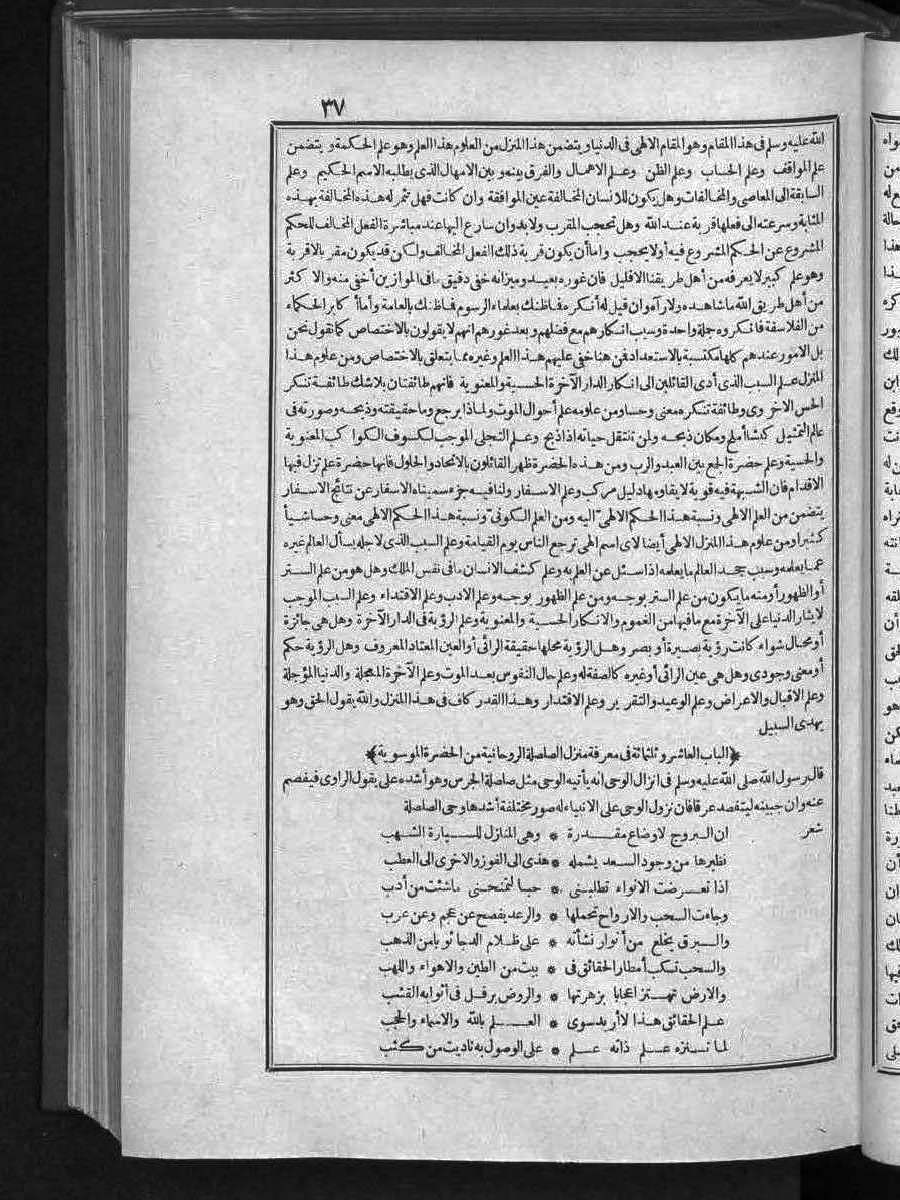 ٣٧
الله عليه وسلم فى هذا المقام وهو المقام الالهى فى الدنيا ويتضمن هذا المنزل من العلوم هذا العلم وهو علم الحكمة ويتضمن
علم المواقف وعلم الحساب وعلم الظن وعلم الاهمال والفرق بينه وبين الامهال الذى يطلبه الاسم الحكيم وعلم
السابقة الى المعاصى والمخالفات وهل يكون للانسان المخالفة عين الموافقة وان كانت فهل تثمر له هذه المخالفة بهذه
المثابة وسرعته الى فعلها قربة عند الله وهل تحجب المقرب ولا بد وان سارع اليها عند مباشرة الفعل المخالف للحكم
المشروع عن الحكم المشروع فيه أولا يحجب واما أن يكون قربة ذلك الفعل المخالف ولكن قد يكون مقربا لاقربة
وهو علم كبير لا يعرفه من أهل طريقنا الا قليل فان غوره بعيد وميزانه خفى دقيق ما فى الموازين أخفى منه والاكثر
من أهل طريق الله ما شاهده ولا رآه وان قيل له أنكره فما ظنك بعلماء الرسوم فما ظنك بالعامة وأما أكابر الحكماء
من الفلاسفة فأنكروه جملة واحدة وسبب انكارهم مع فضلهم وبعد غورهم انهم لا يقولون بالاختصاص كما نقول نحن
بل الامور عندهم كلها مكتسبة بالاستعداد فمن هنا خفى عليهم هذا العلم وغيره مما يتعلق بالاختصاص ومن علوم هذا
المنزل علم السبب الذى أدى القائلين الى انكار الدار الآخرة الحسية والمعنوية فانهم طائفتان بلا شك طائفة تنكر
الحس الاخروى وطائفة تنكره معنى وحسا ومن علومه علم أحوال الموت ولماذا يرجع وما حقيقته وذبحه وصورته فى
عالم التمثيل كبشا أملح ومكان ذبحه ولمن تنتقل حياته اذا ذبح وعلم التجلى الموجب لكسوف الكواكب المعنوية
والحسية وعلم حضرة الجمع بين العبد والرب ومن هذه الحضرة ظهر القائلون بالاتحاد والحلول فانها حضرة علم تزل فيها
الاقدام فان الشبهة فيه قوية لا يقاومها دليل مركب وعلم الاسفار ولنا فيه جزء سميناه الاسفار عن نتائج الاسفار
يتضمن من العلم الالهى ونسبة هذا الحكم الالهى اليه ومن العلم الكونى ونسبة هذا الحكم الالهى معنى وحسا شيأ
كثيرا ومن علوم هذا المنزل الالهى أيضا لاى اسم الهى ترجع الناس يوم القيامة وعلم السبب الذى لاجله يسأل العالم غيره
عما يعلمه وسبب جحد العالم ما يعلمه اذا سئل عن العلم به وعلم كشف الانسان ما فى نفس الملك وهل هو من علم الستر
أو الظهور أو منه ما يكون من علم الستر بوجه ومن علم الظهور بوجه وعلم الادب وعلم الاقتداء وعلم السبب الموجب
لايثار الدنيا على الآخرة مع ما فيها من الغموم والانكار الحسية والمعنوية وعلم الرؤية فى الدار الآخرة وهل هى جائزة
أو محال سواء كانت رؤية بصيرة أو بصر وهل الرؤية محلها حقيقة الرائى أو العين المعتاد المعروف وهل الرؤية حكم
أو معنى وجودى وهل هى عين الرائى أو غيره كالصفة له وعلم حال النفوس بعد الموت وعلم الآخرة المعجلة والدنيا المؤجلة
وعلم الاقبال والاعراض وعلم الوعيد والتقرير وعلم الاقتدار وهذا القدر كاف فى هذا المنزل والله يقول الحق وهو
يهدى السبيل
﴿الباب العاشر وثلثمائة فى معرفة منزل الصلصلة الروحانية من الحضرة الموسوية﴾
قال رسول الله صلى الله عليه وسلم فى انزال الوحى انه يأتيه الوحى مثل صلصلة الجرس وهو أشده على يقول الراوى فيفصم
عنه وان جبينه ليتفصد عرقا فان نزول الوحى على الانبياء له صور مختلفة أشدها وحى الصلصلة
شعر ان البروج لاوضاع مقدرة * وهى المنازل للسيارة الشهب
نظيرها من وجود السعد يشمله * هذى الى الفوز والاخرى الى العطب
اذا تعرضت الانواء تطلبنى * حبا لتمنحنى ماشئت من أدب
وجاءت السحب والارواح تحملها * والرعد يفصح عن عجم وعن عرب
والبرق يخلع من أنوار نشأته * على ظلام الدجا ثوبا من الذهب
والسحب تسكب أمطار الحقائق فى * بيت من الطين والاهواء واللهب
والارض تهتز اعجابا بزهرتها * والروض يرفل فى أثوابه القشب
علم الحقائق هذا لا أريد سوى * العلم بالله والاسماء والحجب
لما تنزه علم ذاته علم * على الوصول به ناديت من كثب